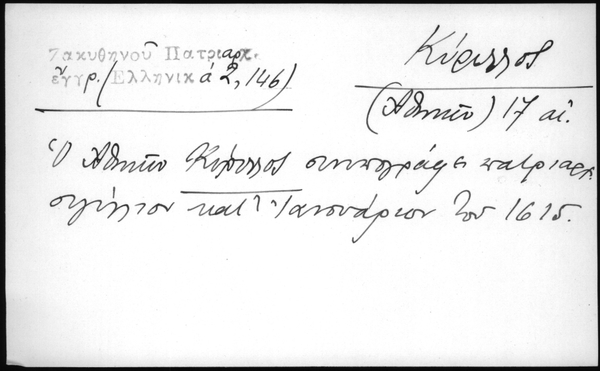 Ζακυθηνοῦ Πατριαρχ.
ἔγγρ. (Ἑλληνικά 2, 146)
Κύριλλος
(Ἀθηνῶν) 17 αἰ.
Ὁ Ἀθηνῶν Κύριλλος συνυπογράφει πατριαρχ.
σιγίλλιον κατ' Ἰανουάριον τοῦ 1615.